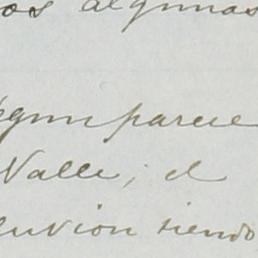 os algunas
egun parece
Valle; el
luvion siendo